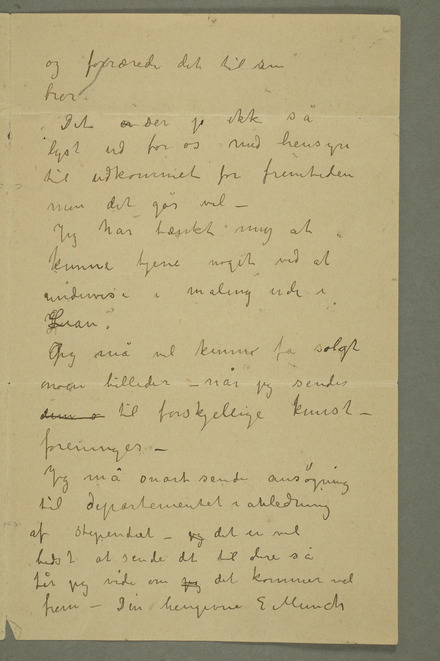 og forærede det til sin
bror.
Det ser jo ikk så
lyst ud for os med hensyn
til udkommet for fremtiden
men det går vel –
Jeg har tænkt mig at
kunne tjene noget ved at
undervise i maling ude i
Jeg må vel kunne få solgt
nogen billeder – når jeg sender
til forskjellige kunst–
foreninger –
Jeg må snart sende ansøgning
til departementet i anledning
af stipendiet – det er vel
bedst at sende det til dere så
får jeg vide om det kommer vel
frem – Din hengivne E Munch